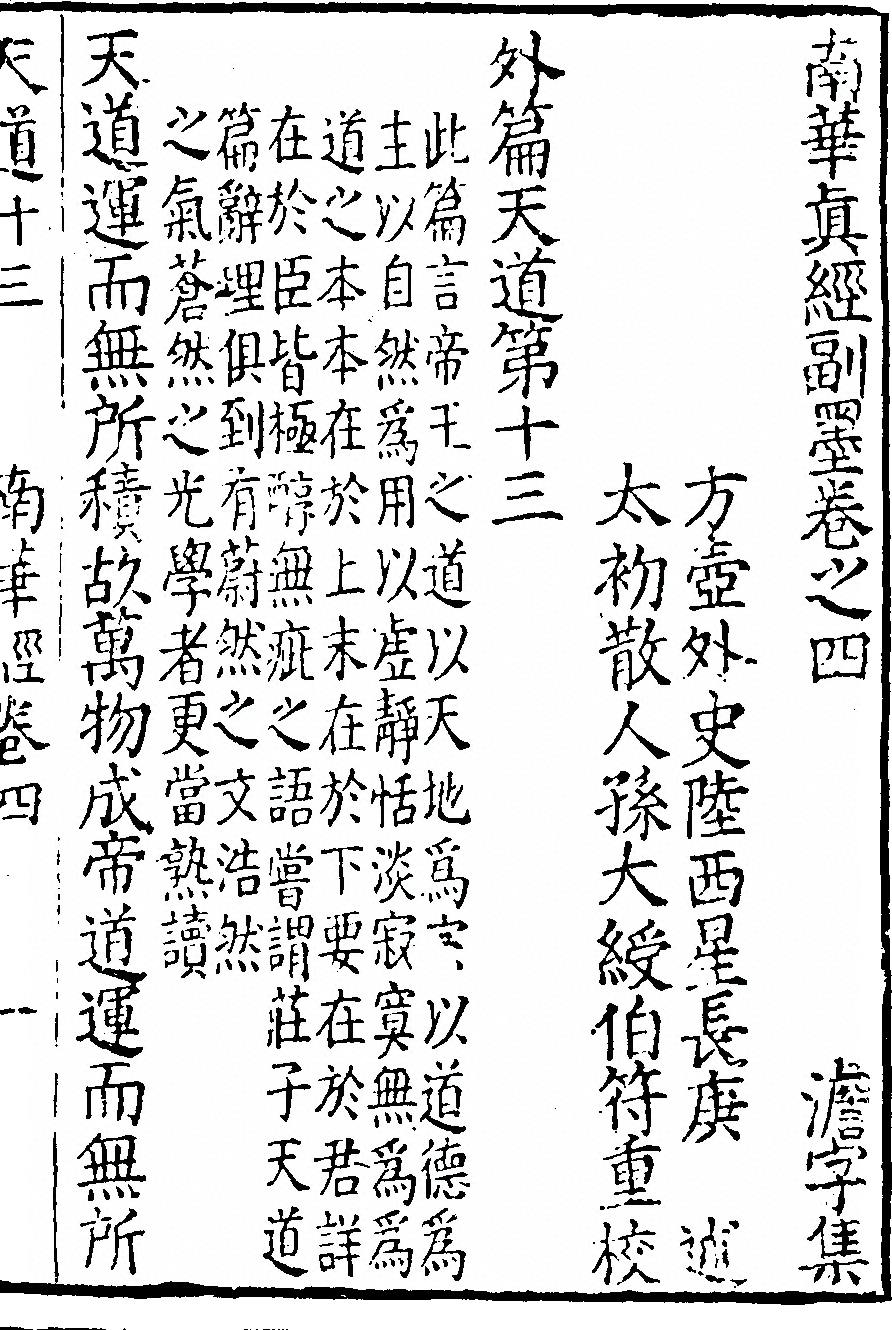 南華眞經副墨卷之四 澹字集
方壺外史陸西星長庚 述
太初散人孫大綬伯符重校
外篇天道第十三
此篇言帝王之道以天地爲宗以道德爲
主以自然爲用以虛靜恬淡寂寞無爲爲
道之本本在於上末在於下要在於君詳
在於臣皆極醇無疵之語嘗謂莊子天道
篇辭理俱到有蔚然之文浩然
之氣蒼然之光學者更當熟讀
天道運而無所積故萬物成帝道運而無所
天道十三 南華經卷四 一